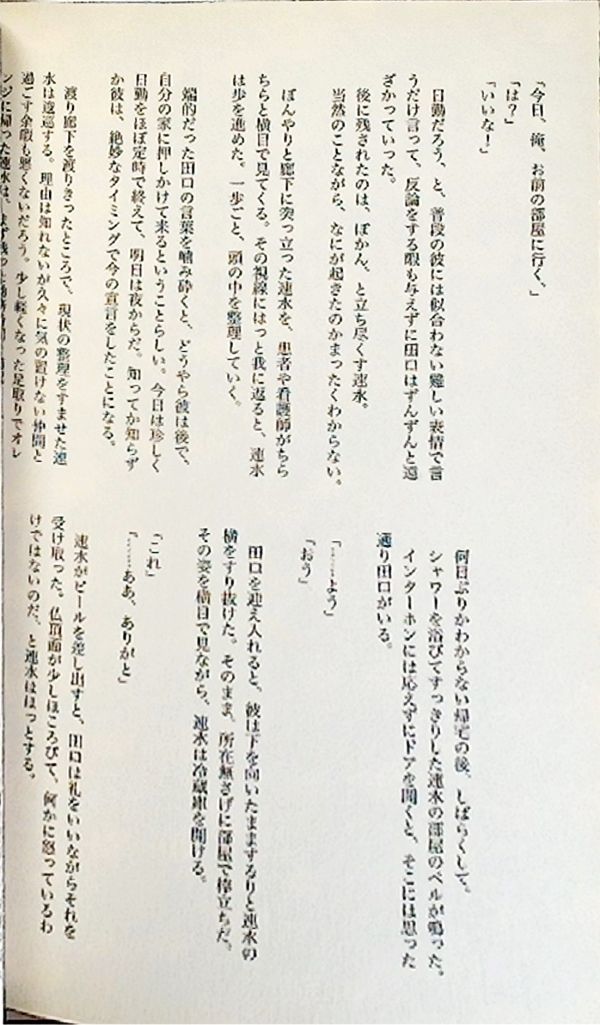 「今日、俺、お前の部屋に行く、」
「は？」
「いいな！」
日勤だろう、と、普段の彼には似合わない難しい表情で言
うだけ言って、反論をする暇も与えずに田口はずんずんと遠
ざかっていった。
後に残されたのは、ぽかん、と立ち尽くす速水。
当然のことながら、なにが起きたのかまったくわからない。
ぼんやりと廊下に突っ立った速水を、患者や看護師がちら
ちらと横目で見てくる。その視線にはっと我に返ると、速水
は歩を進めた。一歩ごと、頭の中を整理していく。
端的だった田口の言葉を噛み砕くと、どうやら彼は後で、
自分の家に押しかけて来るということらしい。今日は珍しく
日勤をほぼ定時で終えて、明日は夜からだ。知ってか知らず
か彼は、絶妙なタイミングで今の宣言をしたことになる。
渡り廊下を渡りきったところで、現状の整理をすませた速
水は逡巡する。理由は知れないが久々に気の置けない仲間と
過ごす余暇も悪くないだろう。少し軽くなった足取りでオレ
ンジに帰った速水は、まず残った
何日ぶりかわからない帰宅の後、しばらくして。
シャワーを浴びてすっきりした速水の部屋のベルが鳴った。
インターホンには応えずにドアを開くと、そこには思った
通り田口がいる。
「……よう」
「おう」
田口を迎え入れると、彼は下を向いたままするりと速水の
横をすり抜けた。そのまま、所在無さげに部屋で棒立ちだ。
その姿を横目で見ながら、速水は冷蔵庫を開ける。
「これ」
「……ああ、ありがと」
速水がビールを差し出すと、田口は礼をいいながらそれを
受け取った。仏頂面が少しほころびて、何かに怒っているわ
けではないのだ、と速水はほっとする。